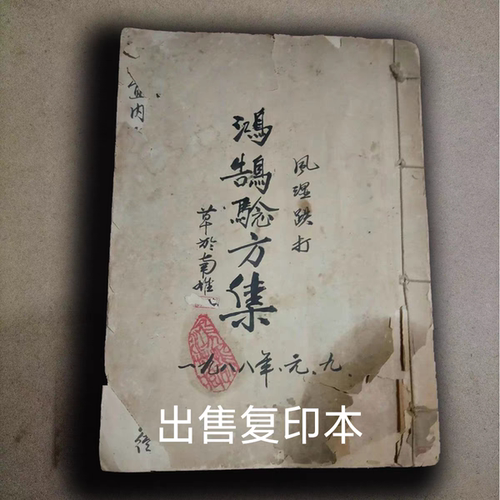 風湿跌打
鴻鵠驗方集
草於南雄
室内
一九八八年、元、九
出售复印本